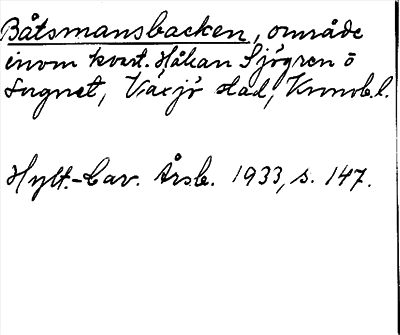 Båtsmansbacken, område
inom kvart. Håkan Sjögren o
Lugnet, Växjö stad, Kronob.l.
Hylt.-Cav. Årsb. 1933, s. 147.